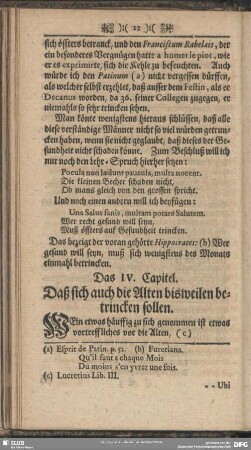 12
sich öffters betranck, und den Franciscum Rabelais, der
ein besonderes Vergnügen hatte à humer le piot, wie
er es exprimirte, sich die Kehle zu befeuchten. Auch
würde ich den Patinum (a) nicht vergessen dürffen,
als welcher selbst erzehlt, daß ausser dem Festin, als er
Decanus worden, da 36. seiner Collegen zugegen, er
niemahls so sehr trincken sehen.
Man könte wenigstens hieraus schlüssen, daß alle
diese verständige Männer nicht so viel würden getrun-
cken haben, wenn sie nicht geglaubt, daß dieses der Ge-
sundheit nicht schaden könte. Zum Beschluß will ich
nur noch den Lehr-Spruch hierher setzen:
Pocula non lædunt paucula, multa nocent.
Die kleinen Becher schaden nicht,
Ob mans gleich von den grossen spricht.
Und noch einen andern will ich beyfügen:
Una Salus sanis, multam potare Salutem.
Wer recht gesund will seyn,
Muß öffters auf Gesundheit trincken.
Das bezeigt der voran gehörte Hippocrates: (b) Wer
gesund will seyn, muß sich wenigstens des Monats
einmahl betrincken.
Das IV. Capitel.
Daß sich auch die Alten bisweilen be-
trincken sollen.
WEin etwas häuffig zu sich genommen ist etwas
vortreffliches vor die Alten, (c)
(a) Esprit de Patin. p. 52. (b) Fureriana.
Qu'il faut à chaque Mois
Du moins s'en yvrer une fois.
(c) Lucretius Lib. III.
Ubi
SLUB
DFG